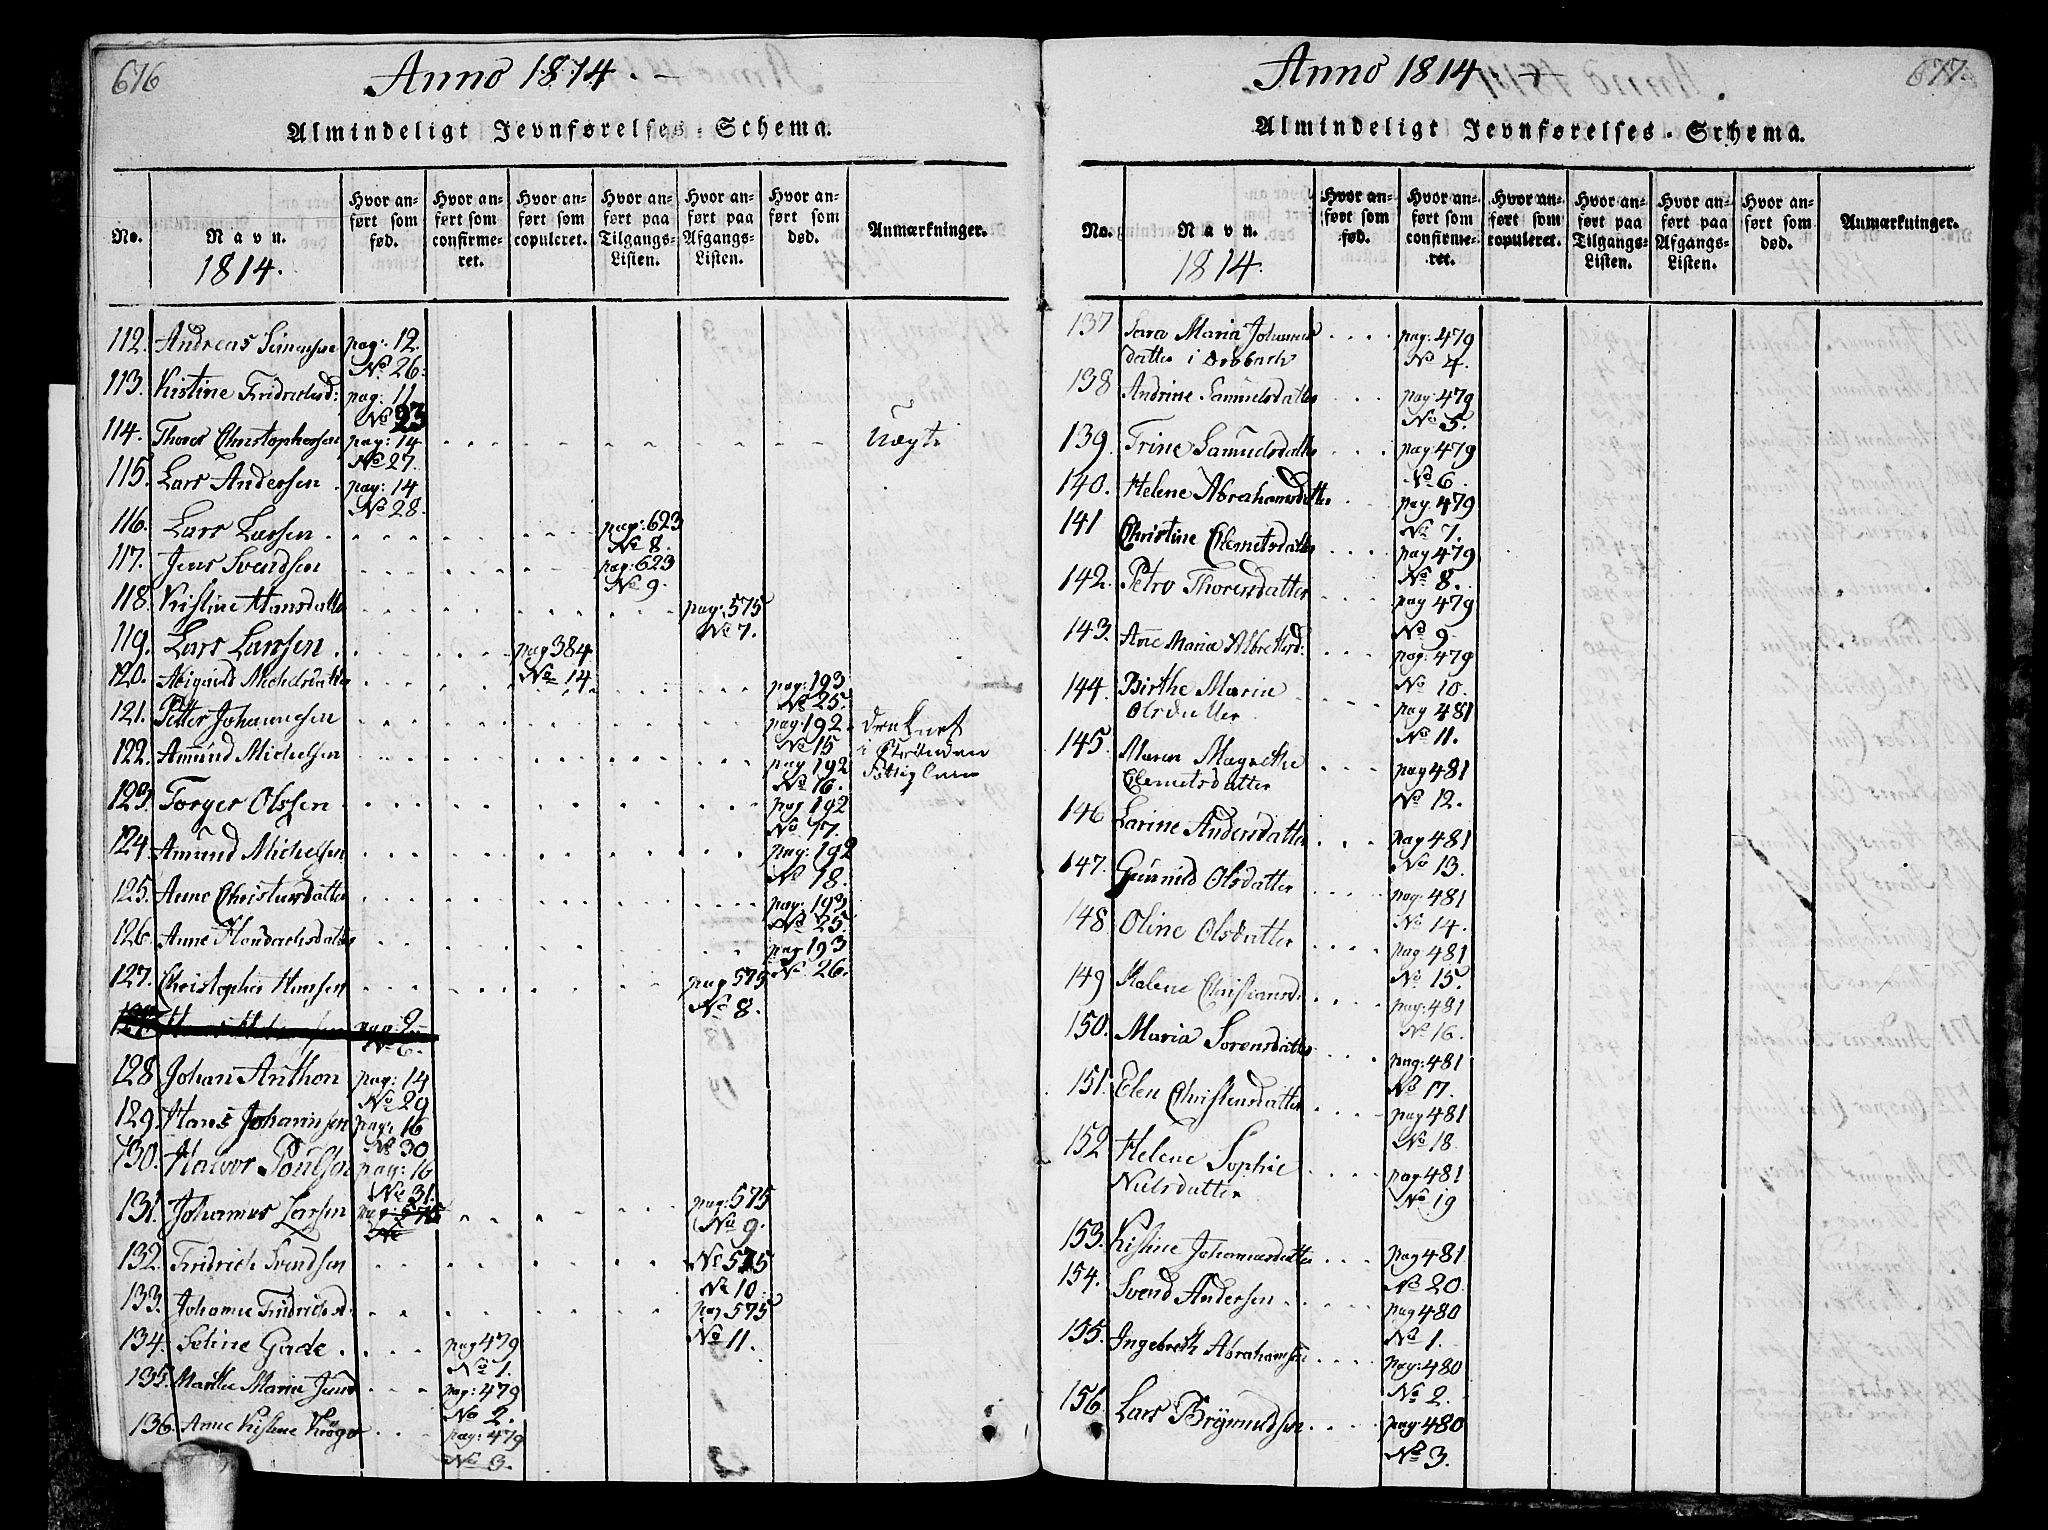 676
Anno 1814.
Almindeligt Jevnførelses-Schema.
No.
Navn.
1814.
Hvor anført som fød.
Hvor anført som confirmeret.
Hvor anført som copuleret.
Hvor anført paa Tilgangs-Listen.
Hvor anført paa Afgangs-Listen.
Hvor anført som død.
Anmærkninger.
112. Andreas Simensen pag: 12.
No 26.
113. Kistine Fridrichsd: pag: 11
No 23
114. Thorer Christophersen pag: 14 Uægte
No 27.
115. Lars Andersen pag: 14
No 28.
116. Lars Larsen pag: 623
No 8.
117. Jens Svendsen pag: 623
No 9.
118. Kistine Hansdatter pag: 575
No 7.
119. Lars Larssen pag 384
No 14.
120. Michelsdatter pag: 193
No 25.
121. Petter Johannesen pag: 192
No 15
122. Amund Michelsen pag 192
No 16.
123. Torger Olssen pag 192
No 17.
124. Amund Michelsen pag: 192
No 18.
125. Anne Christensdatter pag: 193
No 25.
126. Anne pag 193
No 26.
127. Christopher Hansen pag 575
No 8.
pag: 2
No 6.
128 Johan Anthon pag: 14
No 29
129. Hans Johannsen pag: 16
No 30
130. Halvor Poulsen pag: 16
No 31.
131. Johannes Larsen pag: 575 pag: 575
No No 9.
132. Fridrich Svendsen No 575
No 10.
133. Johanne Fridrichsd. pag 575
No 11.
134. Seline Gade pag 479
No 1.
135. Marthe Maria Juul pag: 479
No 2.
136. Anne Kistine pag: 479
No 3.
677.
Anno 1814.
Almindeligt Jevnførelses-Schema.
No.
Navn.
1814.
Hvor anført som fød.
Hvor anført som confirmeret.
Hvor anført som copuleret.
Hvor anført paa Tilgangs-Listen.
Hvor anført paa Afgangs-Listen.
Hvor anført som død.
Anmærkninger.
137 Sara Maria Johannes pag: 479
datter i Drøbach No 4.
138 Andrine Samuelsdatter pag: 479
No 5.
139. Trine Samuelsdatter pag: 479
No 6.
140. Helene Abrahamsdatter pag 479
No 7.
141 Christine Clemetsdatter pag 479
No 8.
142. Petro Thorersdatter pag 479
No 9
143. Añe Maria Albretsd: pag: 479
No 10.
144. Birthe Maria pag 481
Olsdatter No 11.
145. Maren Magrethe pag 481
Clemetsdatter No 12.
146 Larine Andersdatter pag 481
No 13.
147. Gunnild Olsdatter pag: 481
No 14.
148 Oline Olsdatter pag 481
No 15.
149 Malene Christiansd. pag: 481
No 16.
150. Maria Sørensdatter pag: 481
No 17.
151. Elen Christensdatter pag 481
No 18.
152 Helene Sophie pag 481
Nielsdatter No 19
153. Kistine Johannesdatter pag 481
No 20.
154. Svend Andersen pag 480
No 1.
155. Ingebreth Abrahamsen pag: 480
No 2.
156. Lars Brynnildsen pag: 480
No 3.